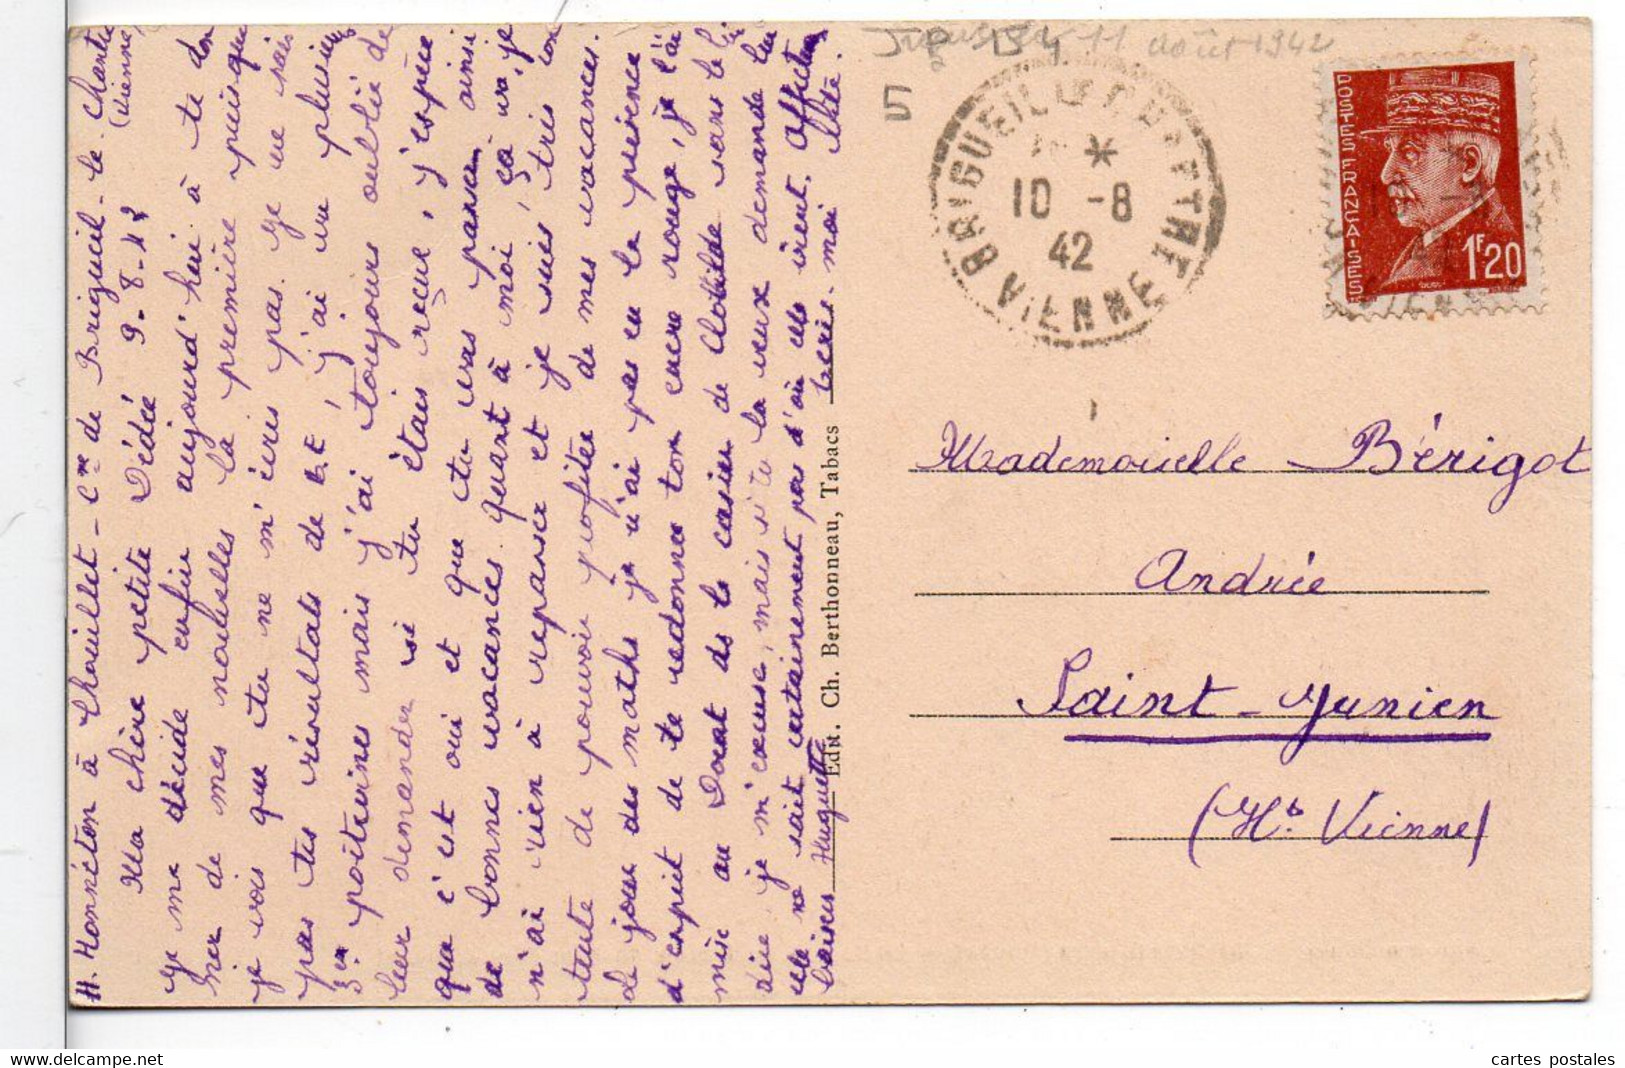 H. Honnéton à Chouillet - Cne de Brigueil-le-Chantre
(Vienne)
Ma chère petite Dédée 9-8-42
Je me décide enfin aujourd'hui à te don
ner de mes nouvelles la première puisque
je vois que tu ne m'écris pas. Je ne sais
pas tes résultats de B.E, j'ai vu plusieurs
3en poitevines mais j'ai toujours oublié de
leur demander si tu étais reçue, j'espère
que c'est oui et que tu vas passer ainsi
de bonnes vacances. Quant à moi, ça va, je
n'ai rien à repasser et je suis très con
tente de pouvoir profiter de mes vacances.
Le jour des maths je n'ai pas eu la présence
d'esprit de te redonner ton encre rouge, je l'ai
mise au Dorat ds le casier de Clotilde sans le lui
dire, je m'excuse, mais si tu la veux demande lui
elle ne sait certainement pas d'où elle vient. Affectueux
baisers Huguette Ecris-moi vite.
Edit. Ch. Berthonneau, Tabacs
11 août 1942
BRIGUEIL LE CHANTRE
10 -8
42
VIENNE
POSTES FRANÇAISES
1F20
Mademoiselle Bérigot
Andrée
Saint-Junien
(Hte Vienne)
cartes postales